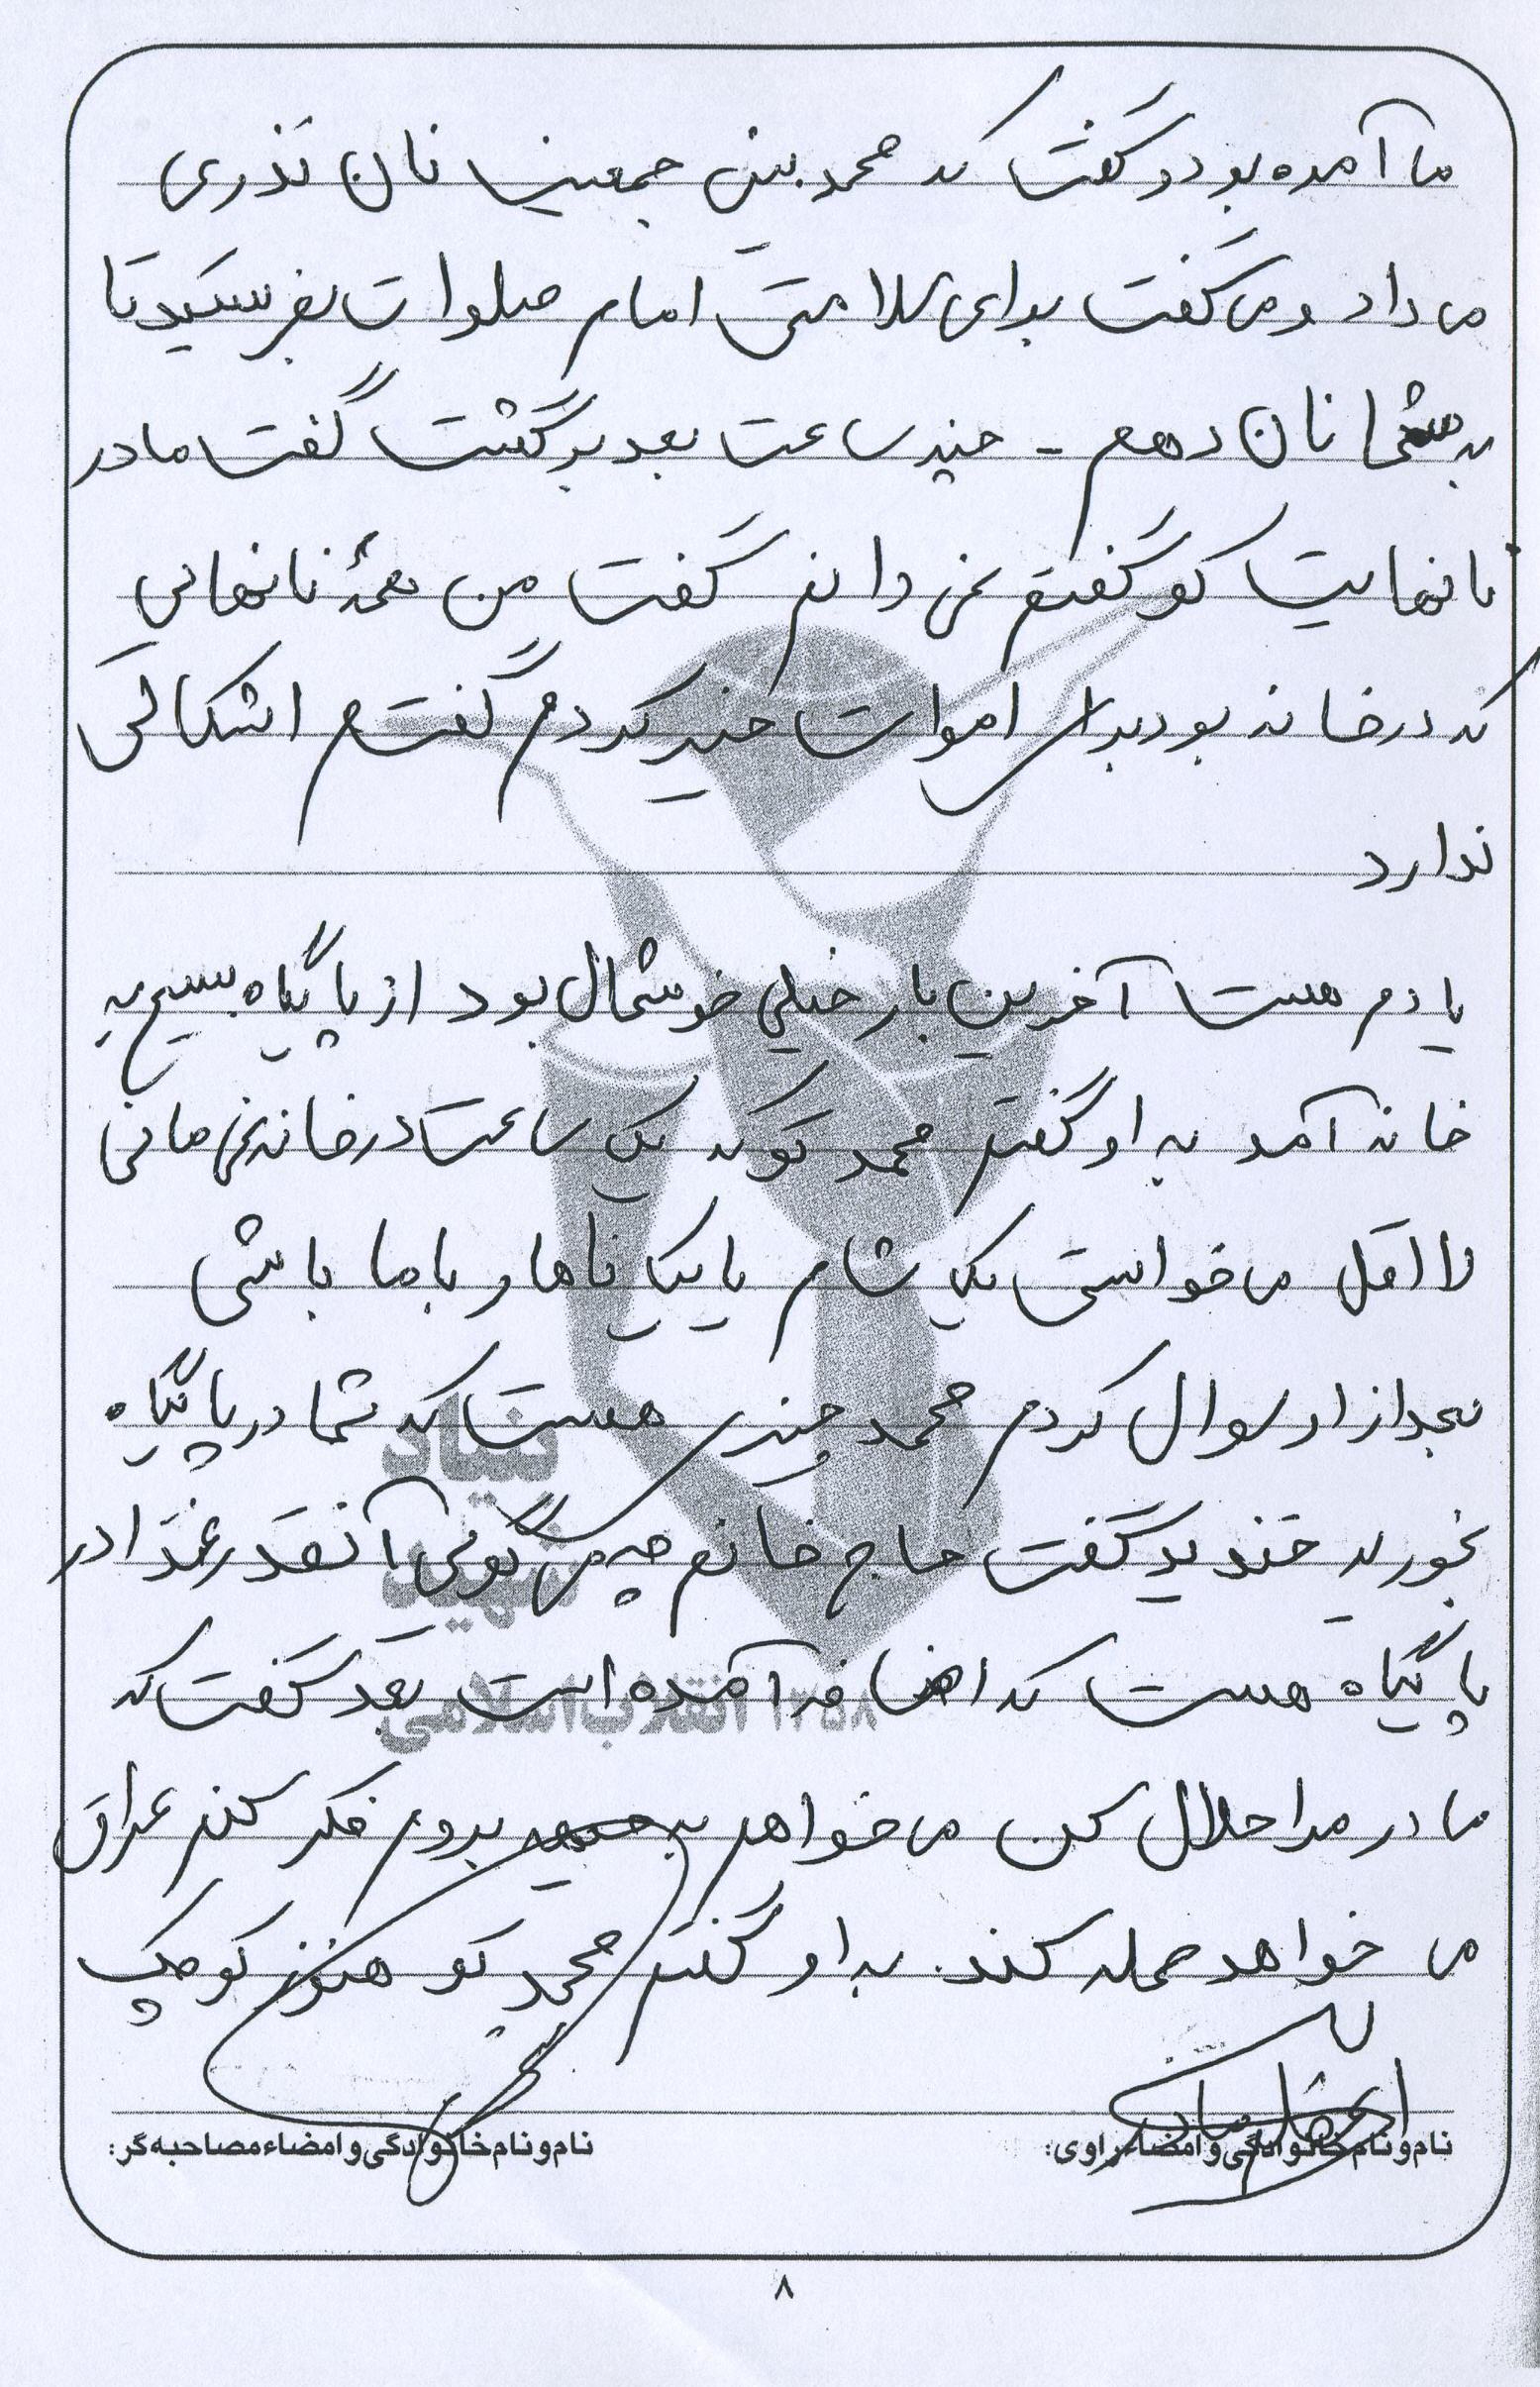 ما آمده بود و گفت که محمد بین جمعیت نان نذری
می داد و می گفت برای سلامتی امام صلوات بفرستید تا
به شما نان دهم - چند ساعت بعد برگشت گفت مادر
نانهایت کو گفتم نمی دانم گفت من همۀ نانهایی
که در خانه بود برای اموات خیر کردم گفتم اشکالی
ندارد
یادم هست آخرین بار خیلی خوشحال بود از پایگاه بسیج به
خانه آمد به او گفتم محمد تو که یک ساعت در خانه نمی مانی
لااقل می خواستی یک شام یا یک ناهار با ما باشی
بعد از او سوال کردم محمد چیزی هست که شما در پایگاه
بخورید خندید گفت حاج خانم چه می گویی آنقدر غذا در
پایگاه هست که اضافه آمده است بعد گفت که
مادر مرا حلال کن می خواهم به جبهه بروم فکر کنم عراق
می خواهد حمله کند. به او گفتم محمد تو هنوز کوچک
نام و نام خانوادگی و امضاء راوی:
نام و نام خانوادگی و امضاء مصاحبه گر:
بنیاد
شهید
انقلاب اسلامی ۱۳۵۸
۸